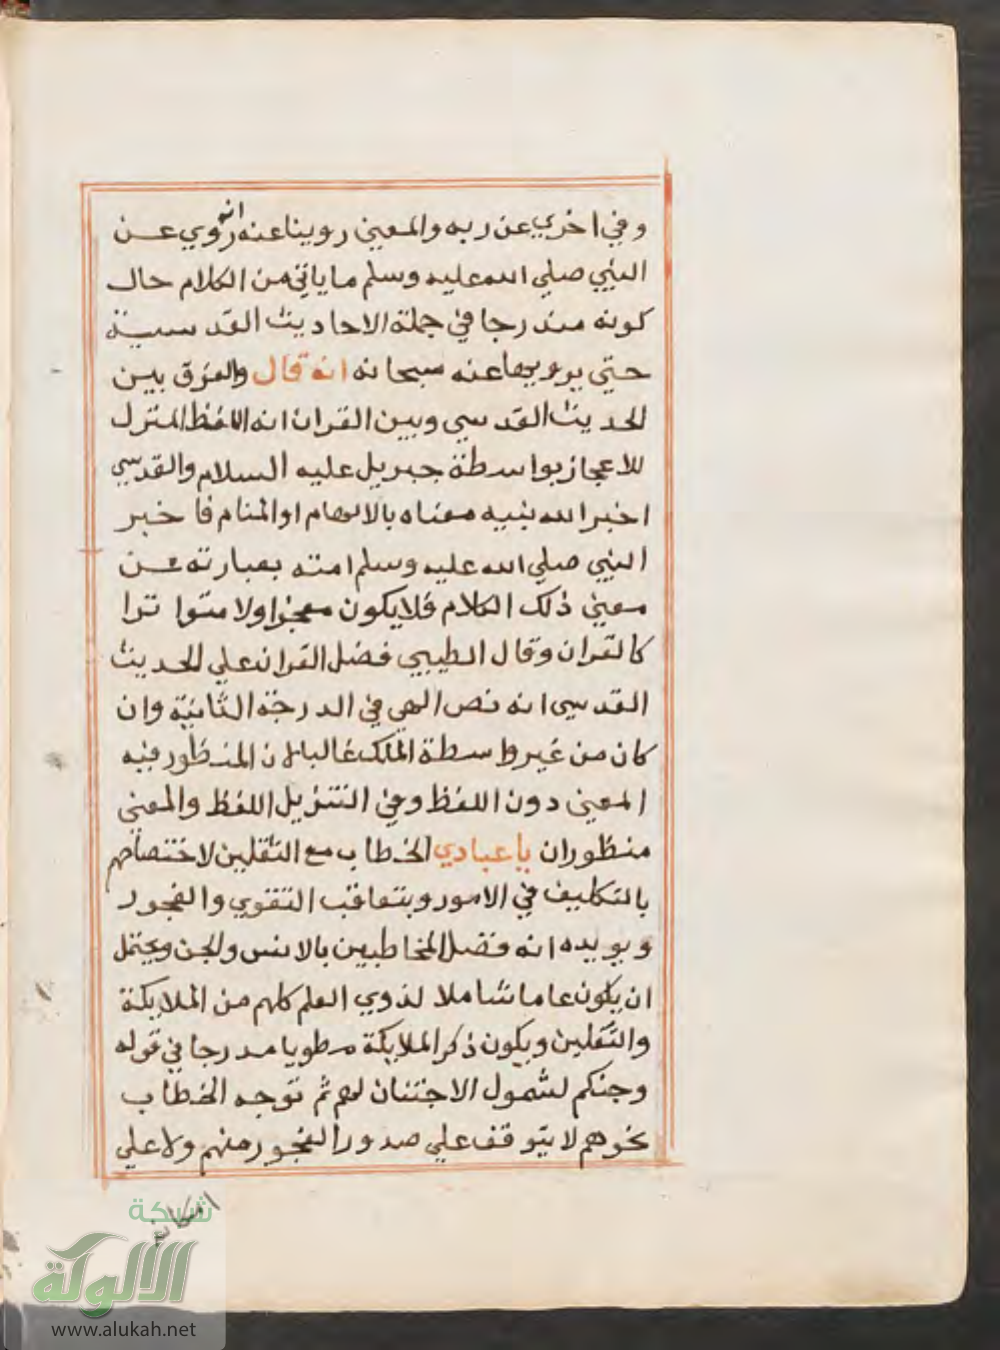 وفي اخري عن ربه والمعني روينا عنه انه روي عن
النبي صلي الله عليه وسلم ما ياتي من الكلام حال
كونه مندرجا في جملة الاحاديث القدسية
حتي يرويها عنه سبحانه انه قال والفرق بين
الحديث القدسي وبين القران انه اللفظ المنزل
للاعجاز بواسطة جبريل عليه السلام والقدسي
اخبر الله بنبيه معناه بالالهام او المنام فاخبر
النبي صلي الله عليه وسلم امته بعبارته عن
معني ذلك الكلام فلا يكون معجزا ولا متواترا
كالقران وقال الطيبي فضل القران علي الحديث
القدسي انه نص الهي في الدرجة الثانية وان
كان من غير واسطة الملك غالبا لان المنظور فيه
المعني دون اللفظ وفي التنزيل اللفظ والمعني
منظوران يا عبادي الخطاب مع الثقلين لاختصاصهم
بالتكليف في الامور وبتعاقب التقوي والفجور
ويويده انه فصل المخاطبين بالانس والجن ويحتمل
ان يكون عاما شاملا لذوي العلم كلهم من الملايكة
والثقلين ويكون ذكر الملايكة مطويا مدرجا في قوله
وجنكم لشمول الاجتنان لهم ثم توجه الخطاب
نحوهم لا يتوقف علي صدور الفجور منهم ولا علي
شبكة
الألوكة
www.alukah.net